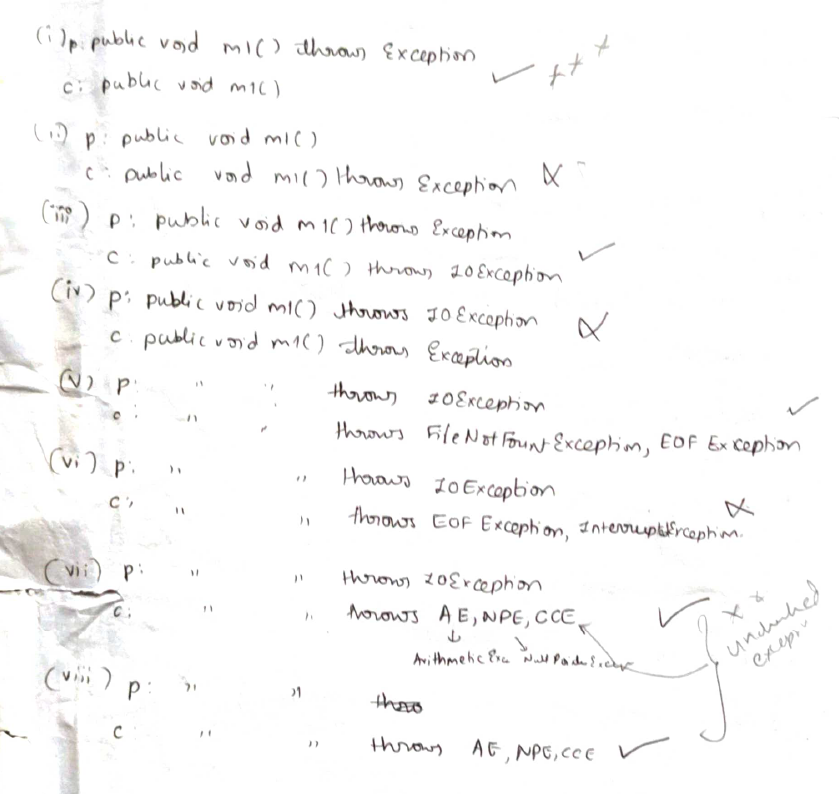 (i) p: public void m1() throws Exception
c: public void m1()
(ii) p: public void m1()
c: public void m1() throws Exception
(iii) p: public void m1() throws Exception
c: public void m1() throws IOException
(iv) p: public void m1() throws IOException
c. public void m1() throws Exception
(v) p: " " throws IOException
c: " " throws FileNotFountException, EOF Exception
(vi) p: " " throws IOException
c: " " throws EOF Exception, InterruptException.
(vii) p: " " throws IOException
c: " " throws AE, NPE, CCE
Arithmetic Exc
unchecked
(viii) p: " "
c " " throws AE, NPE, CCE